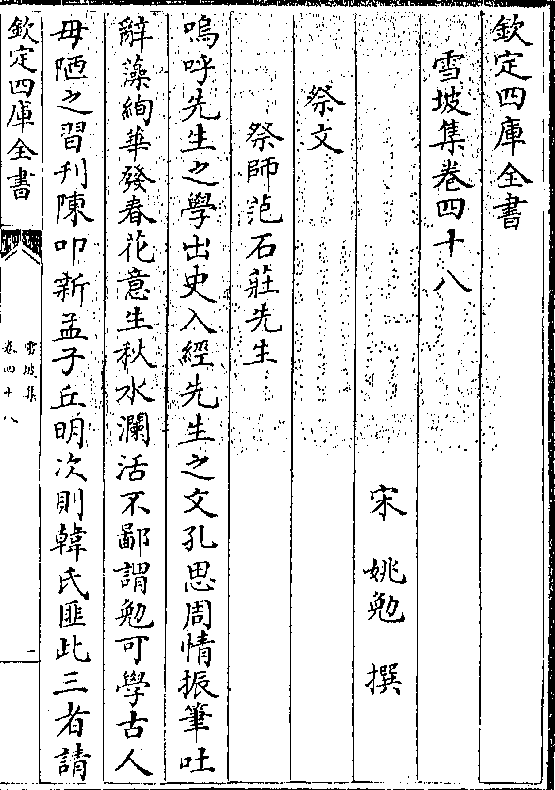 欽定四庫全書
雪坡集卷四十八
宋 姚勉 撰
祭文
祭師范石莊先生
嗚呼先生之學出史入經先生之文孔思周情振筆吐
辭藻絢華發春花意生秋水瀾活不鄙謂勉可學古人
毋陋之習刋陳叩新孟子丘明次則韓氏匪此三者請
欽定四庫全書
雪坡集
卷四十八
一